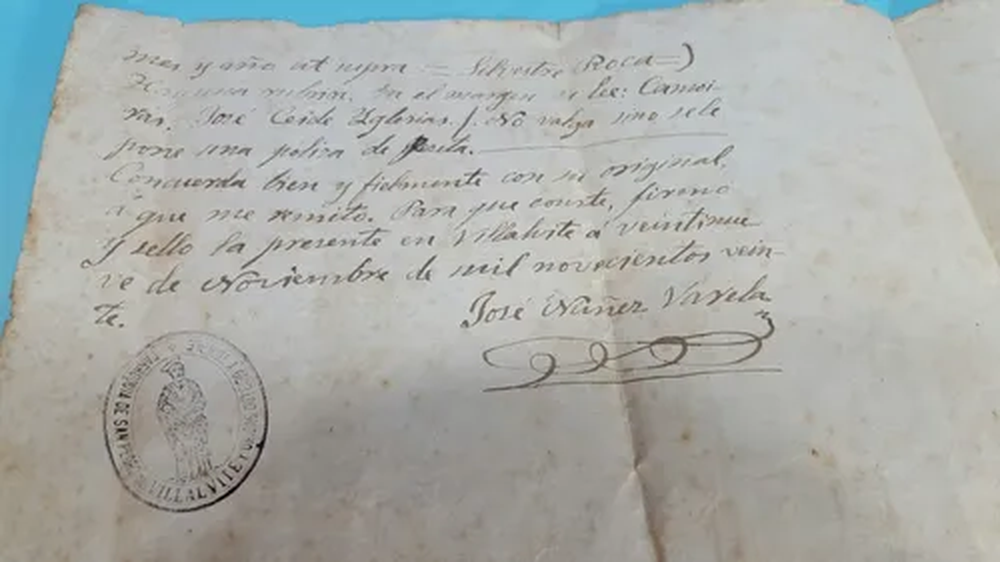 mes y año ut supra = Silvestre Roca =)
Hay una rubrica. En el margen se lee: Camoi-
ras. José Ceide Yglesias. /. No valga sino se le
pone una poliza de peseta.
Concuerda bien y fielmente con su original,
á que me remito. Para que conste, firmo
y sello la presente en Villalvite á veintinue
ve de Noviembre de mil novecientos vein-
te.
José Núñez Varela
PARROQUIA DE SAN PEDRO VILLALVITE Y